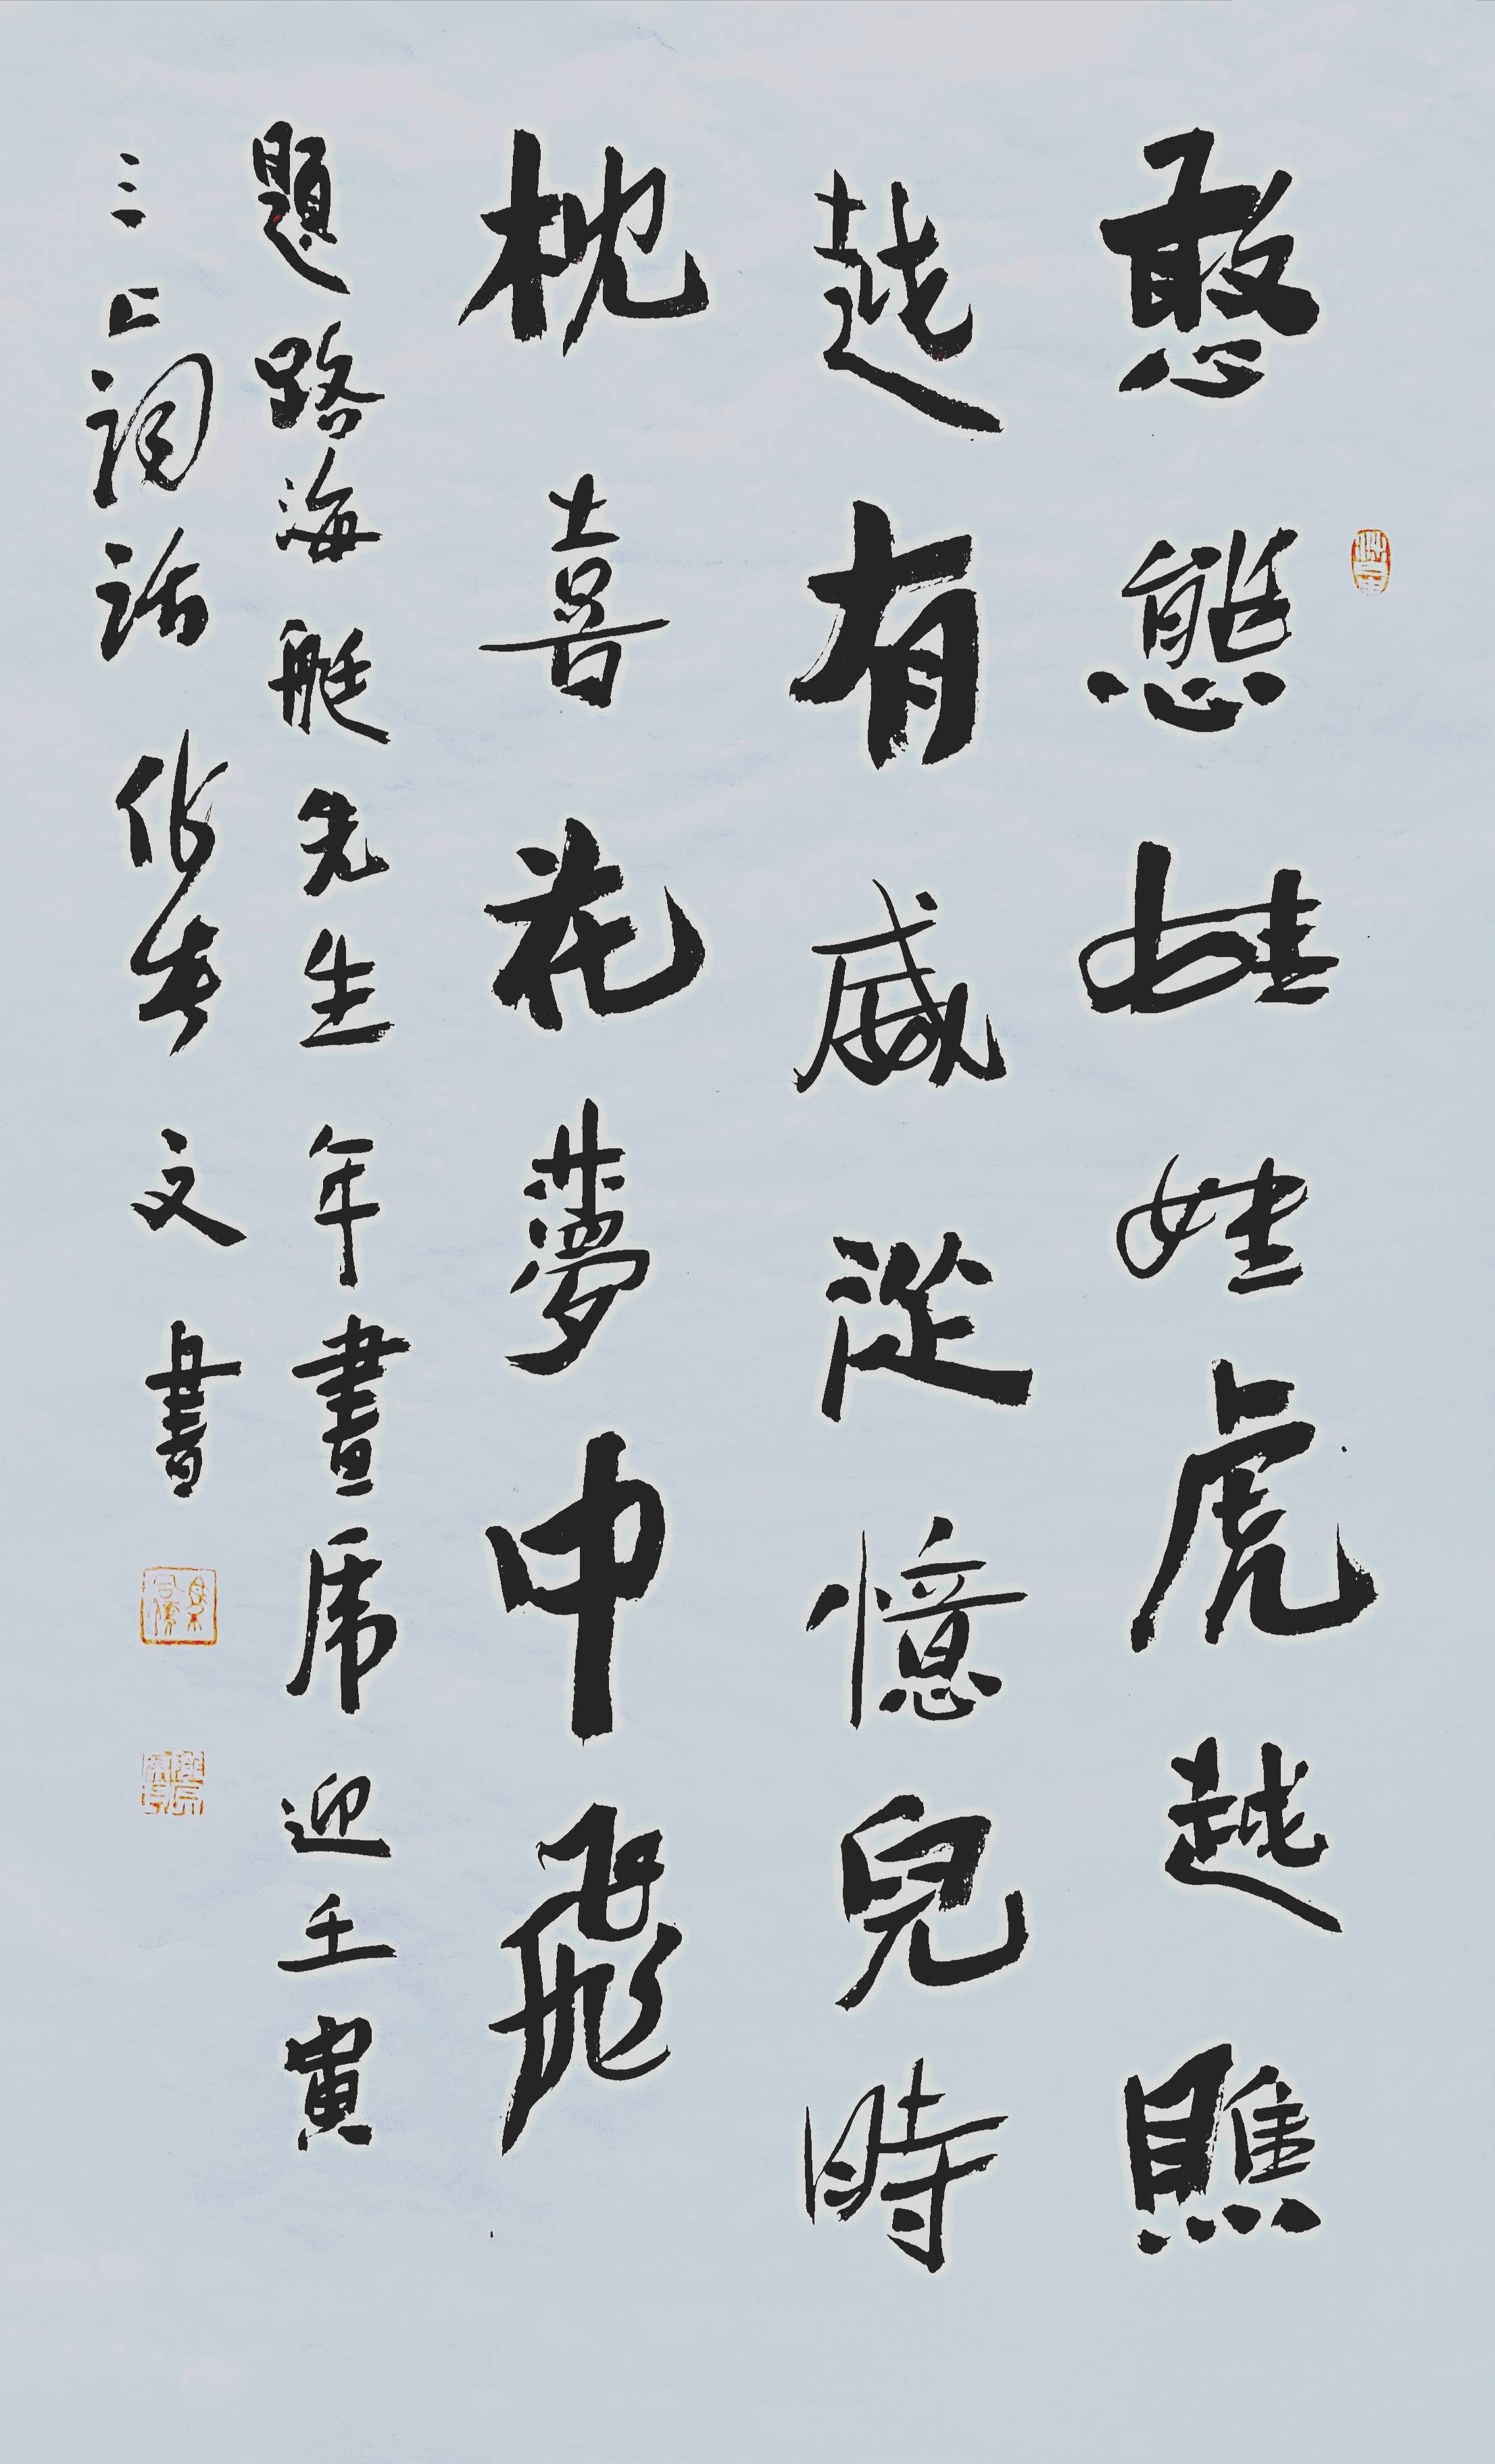 憨態娃娃虎越瞧
越有威從憶兒時
枕喜花夢中飛
題路海艇先生年畫虎迎壬寅
詞話文書